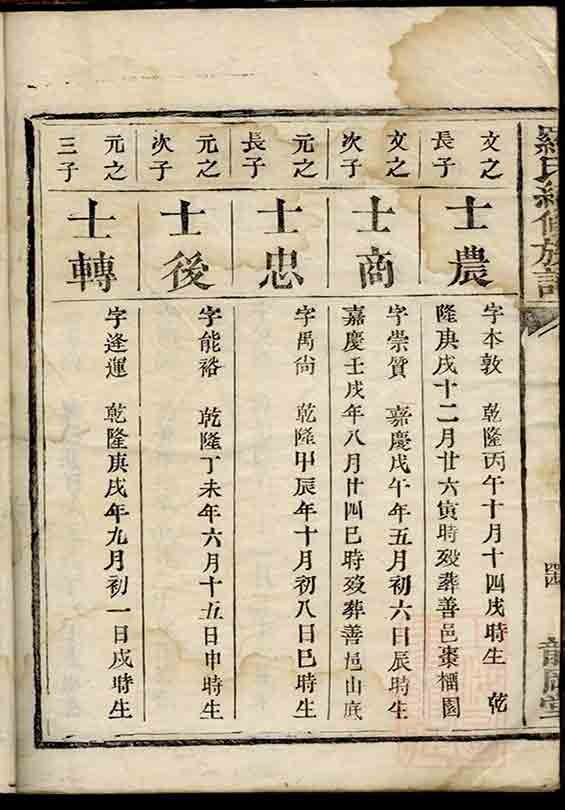 羅氏續修族譜
文之
長子
士農
字本敦 乾隆丙午十月十四戌時生 乾
隆庚戌十二月廿六寅時歿葬善邑棗園
文之
次子
士商
字崇質 嘉慶戊午年五月初六日辰時生
嘉慶壬戌年八月廿四巳時歿葬善邑山底
元之
長子
士忠
字禹尙 乾隆甲辰年十月初八日巳時生
元之
次子
士後
字能裕 乾隆丁未年六月十五日申時生
元之
三子
士轉
字逢運 乾隆庚戌年九月初一日戌時生